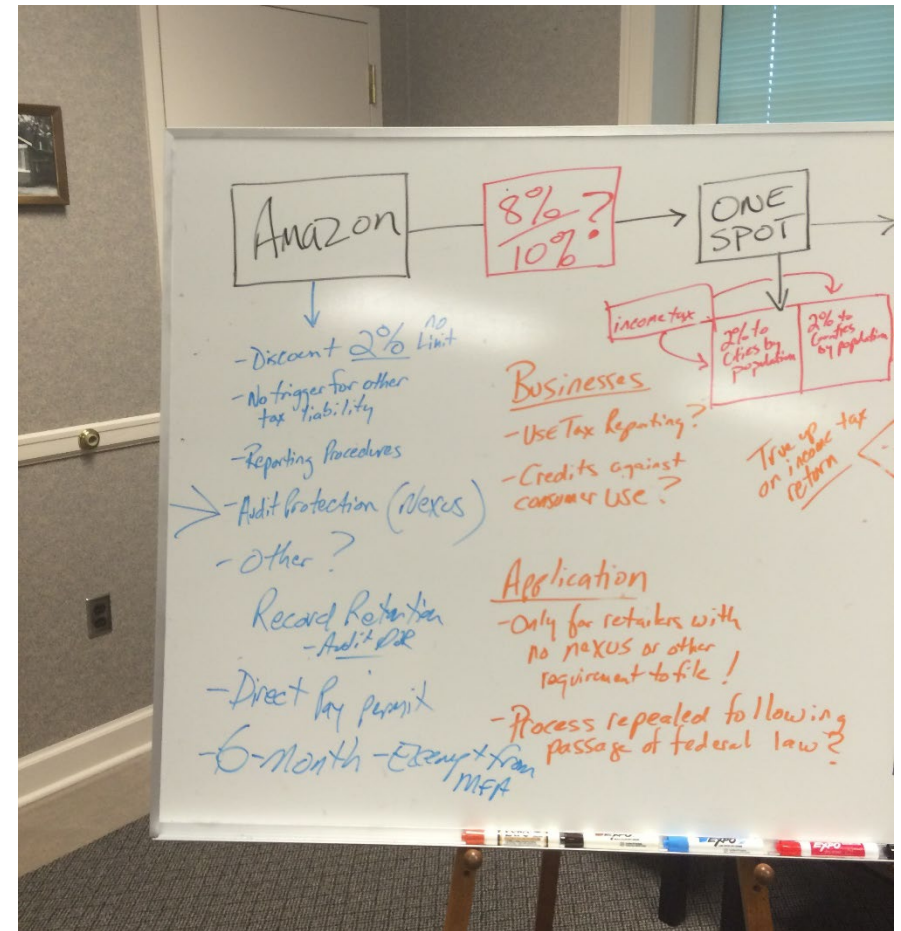 Amazon
8%
10% ?
ONE
SPOT
income tax
2% to
Cities by
population
2% to
Counties
by population
- Discount 2% no Limit
- No trigger for other
tax liability
- Reporting Procedures
- Audit Protection (Nexus)
- Other ?
Record Retention
- Audit DOR
- Direct Pay permit
- 6-month - Exempt from
MFA
Businesses
- Use Tax Reporting?
- Credits against
consumer use?
True up
on income tax
return
Application
- Only for retailers with
no nexus or other
requirement to file!
- Process repealed following
passage of federal law?
EXPO
EXPO
EXPO